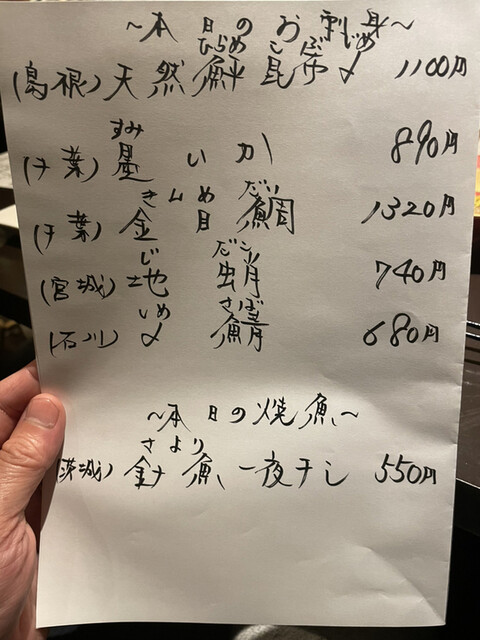 ～本日のお刺身～
ひらめ こぶじめ
(島根) 天然鮃昆布〆 1100円
すみ
(千葉) 墨いか 890円
きんめ だい
(千葉) 金目鯛 1320円
じ だこ
(宮城) 地蛸 740円
しめ さば
(石川) 〆鯖 680円
～本日の焼魚～
さより
(茨城) 針魚一夜干し 550円